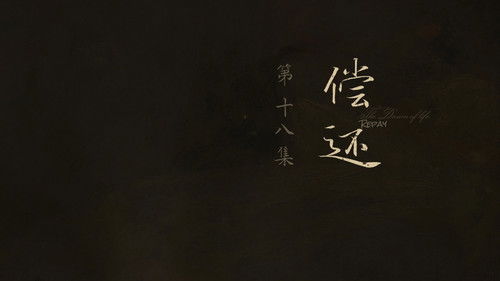 偿还
第十八集
REPAY